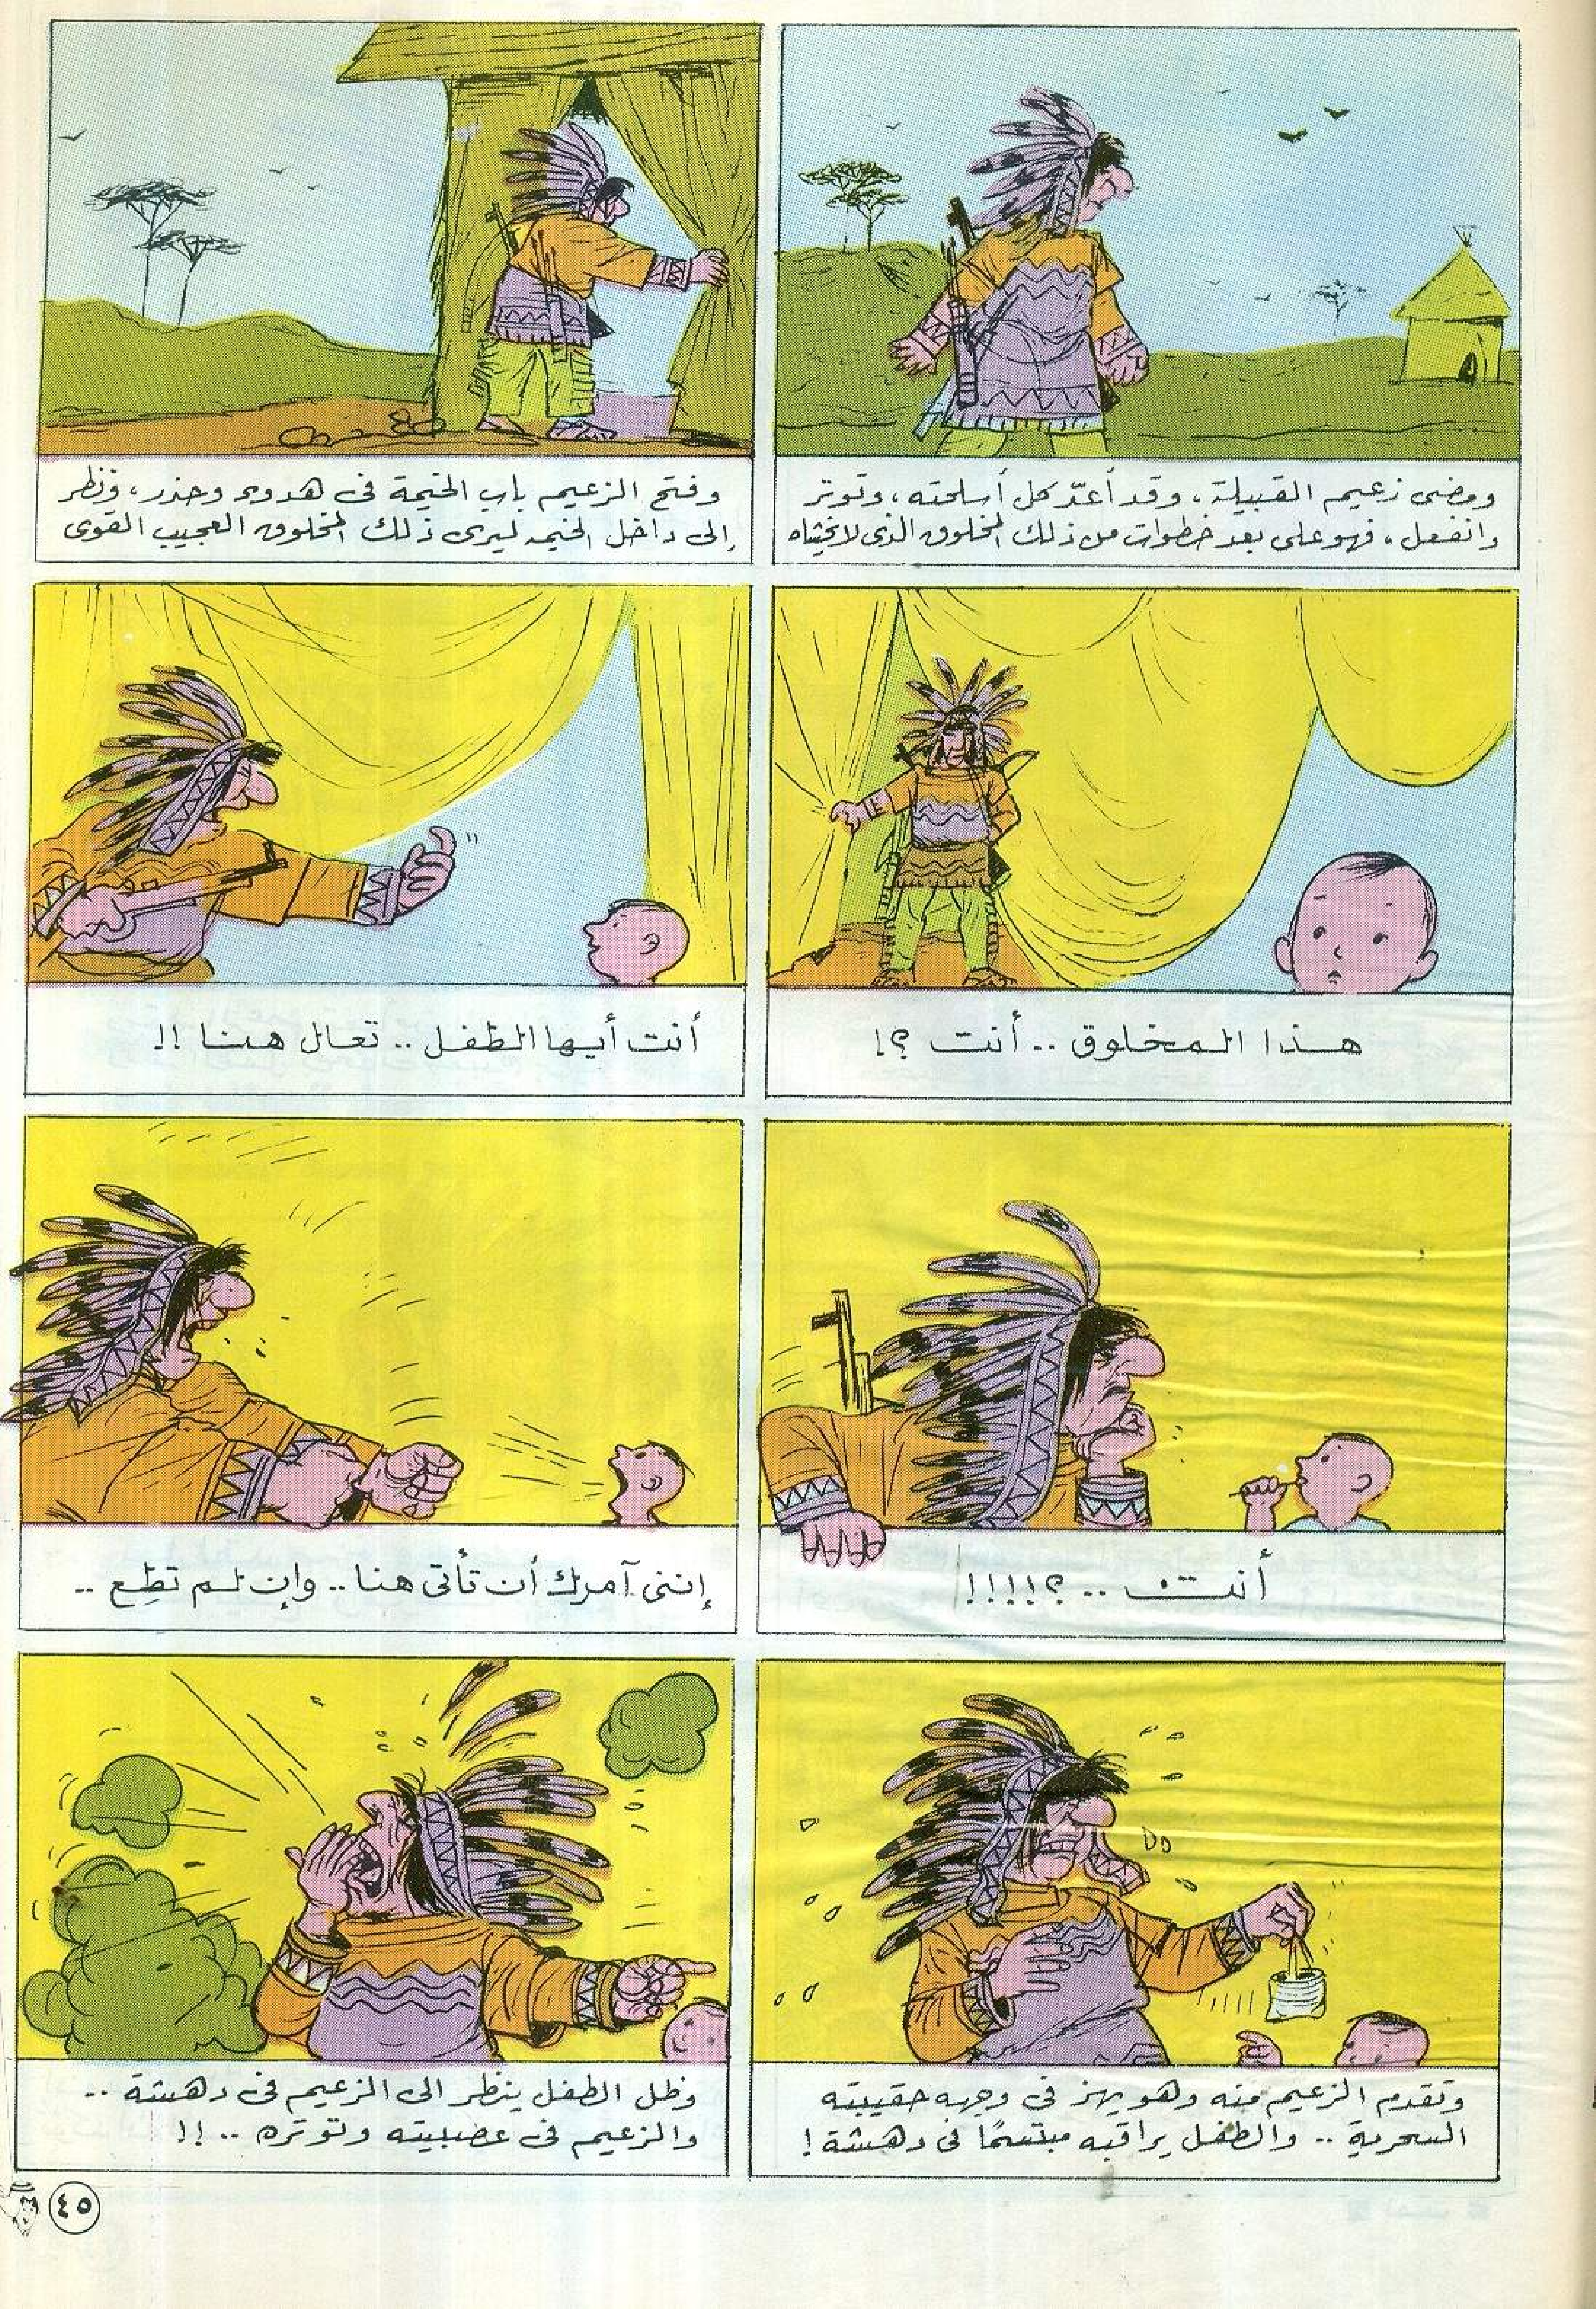 ومضى زعيم القبيلة، وقد أعدّ كل أسلحته، وتوتر
وانفعل، فهو على بعد خطوات من ذلك المخلوق الذى لا يخشاه
وفتح الزعيم باب الخيمة فى هدوء وحذر، ونظر
إلى داخل الخيمة ليرى ذلك المخلوق العجيب القوى
هذا المخلوق .. أنت ؟!
أنت أيها الطفل .. تعال هنا !!
أنت .. ؟!!!!!
إننى آمرك أن تأتى هنا .. وإن لم تطع ..
وتقدم الزعيم منه وهو يهز فى وجهه حقيبته
السحرية .. والطفل يراقبه مبتسمًا فى دهشة !
وظل الطفل ينظر الى الزعيم فى دهشة ..
والزعيم فى عصبيته وتوتره .. !!
٤٥